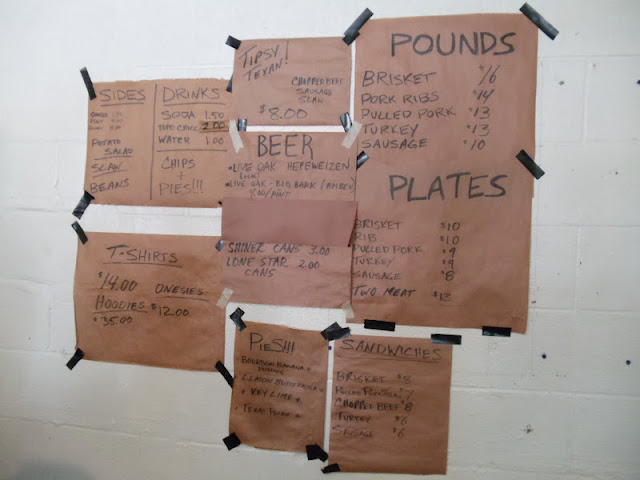 SIDES
POTATO
SALAD
SLAW
BEANS
DRINKS
SODA 1.50
TOPO CHICO 2.00
WATER 1.00
CHIPS
+
PIES!!!
TIPSY
TEXAN!
CHOPPED BEEF
SAUSAGE
SLAW
$8.00
BEER
•LIVE OAK HEFEWEIZEN
•LIVE OAK - BIG BARK (AMBER)
SHINER CANS 3.00
LONE STAR 2.00
CANS
POUNDS
BRISKET $16
PORK RIBS $14
PULLED PORK $13
TURKEY $13
SAUSAGE $10
PLATES
BRISKET $10
RIB $10
PULLED PORK $9
TURKEY $9
SAUSAGE $8
TWO MEAT $12
T-SHIRTS
$14.00 ONESIES
HOODIES $12.00
$35.00
PIES!!!
• BOURBON BANANA
PUDDING
• LEMON BUTTERMILK
• KEY LIME
• TEXAS PECAN
SANDWICHES
BRISKET $8
PULLED PORK $7
CHOPPED BEEF $8
TURKEY $6
SAUSAGE $6